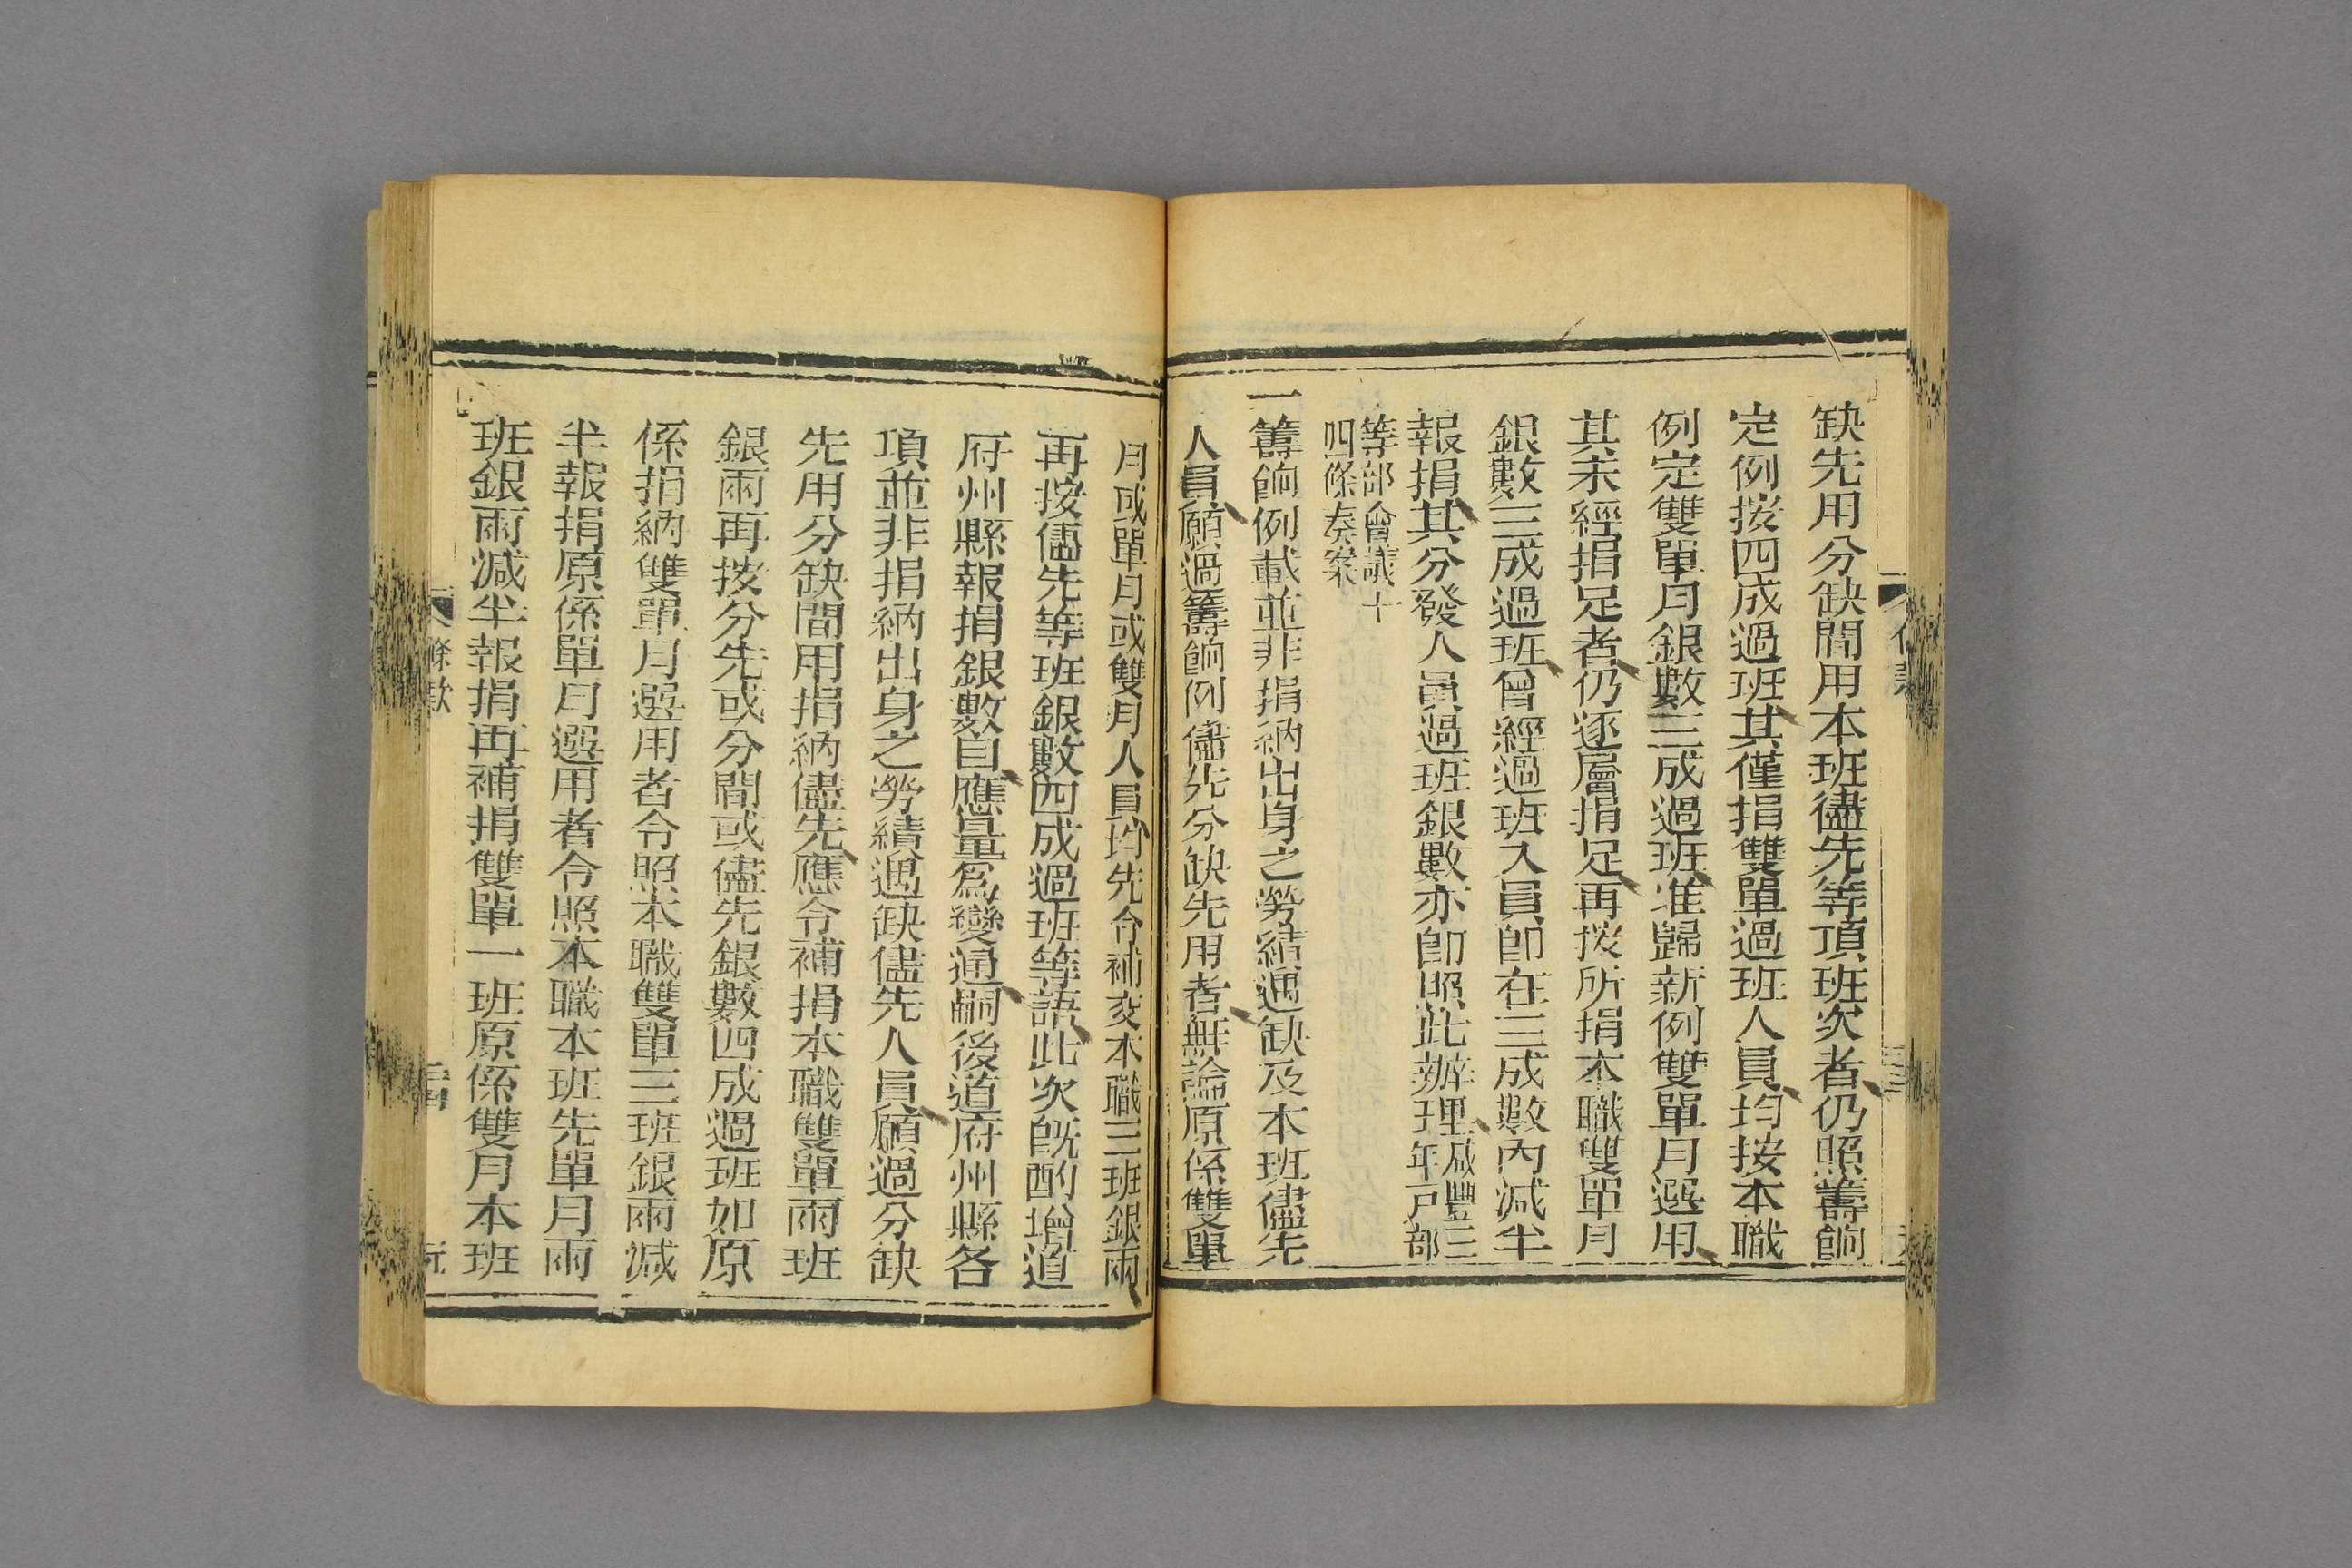 缺先用分缺間用本班儘先等項班次者仍照籌餉
定例按四成過班其僅捐雙單過班人員均按本職
例定雙單月銀數三成過班准歸新例雙單月選用
其未經捐足者仍逐層捐足再按所捐本職雙單月
銀數三成過班曾經過班人員即在三成數內減半
報捐其分發人員過班銀數亦即照此辦理咸豐三
年戸部
等部會議十
四條奏案
一籌餉例載並非捐納出身之勞績遇缺及本班儘先
人員願過籌餉例儘先分缺先用者無論原係雙單
月或單月或雙月人員均先令補交本職三班銀兩
再按儘先等班銀數四成過班等語此次既酌增道
府州縣報捐銀數自應量為變通嗣後道府州縣各
項並非捐納出身之勞績遇缺儘先人員願過分缺
先用分缺間用捐納儘先應令補捐本職雙單兩班
銀兩再按分先或分間或儘先銀數四成過班如原
係捐納雙單月選用者令照本職雙單三班銀兩減
半報捐原係單月選用者令照本職本班先單月兩
班銀兩減半報捐再補捐雙單一班原係雙月本班
條款